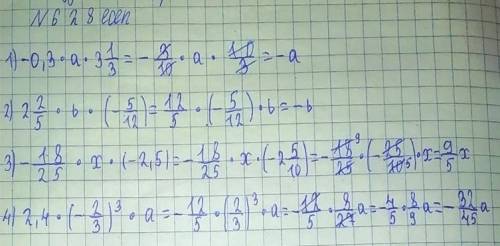 №628 есеп
1) -0,3 · a · 3 1/3 = - 3/10 · a · 10/3 = -a
2) 2 2/5 · b · (- 5/12) = 12/5 · (- 5/12) · b = -b
3) - 18/25 · x · (-2,5) = - 18/25 · x · (-2 5/10) = - 18⁹/25 · (- 25/10 5) · x = 9/5 x
4) 2,4 · (- 2/3)³ · a = - 12/5 · (2/3)³ · a = - 12/5 · 8/27 a = - 4/5 · 8/9 a = - 32/45 a